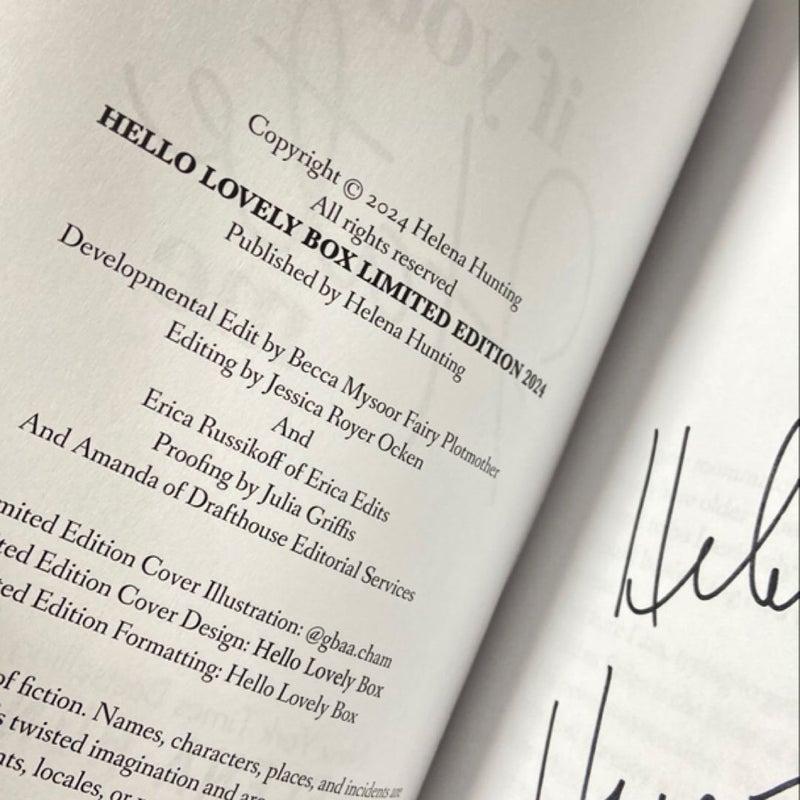 Copyright © 2024 Helena Hunting
All rights reserved
HELLO LOVELY BOX LIMITED EDITION 2024
Published by Helena Hunting
Developmental Edit by Becca Mysoor Fairy Plotmother
Editing by Jessica Royer Ocken
And
Erica Russikoff of Erica Edits
Proofing by Julia Griffis
And Amanda of Drafthouse Editorial Services
mited Edition Cover Illustration: @gbaa.cham
ted Edition Cover Design: Hello Lovely Box
ted Edition Formatting: Hello Lovely Box
of fiction. Names, characters, places, and incidents are
s twisted imagination and are
nts, locales, or
Hele
if you